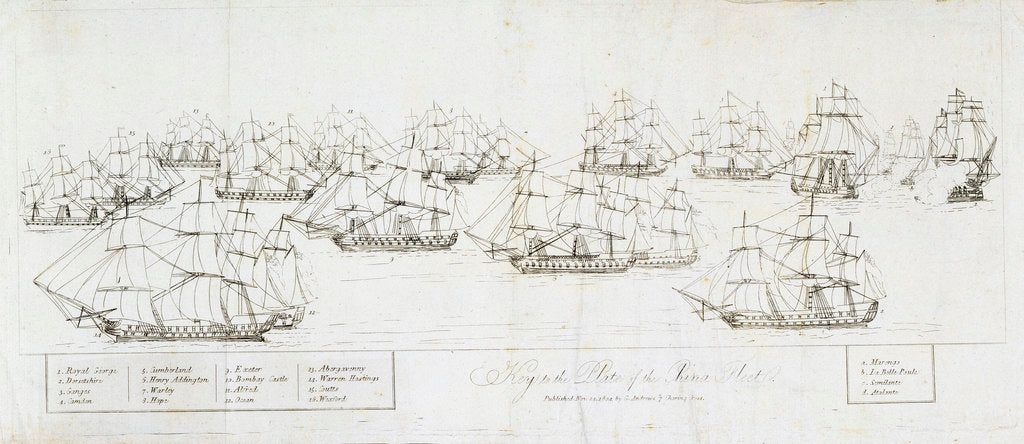 1. Royal George
2. Dorsetshire
3. Ganges
4. Camden
5. Cumberland
6. Henry Addington
7. Warley
8. Hope
9. Exeter
10. Bombay Castle
11. Alfred
12. Ocean
13. Abergavenny
14. Warren Hastings
15. Coutts
16. Wexford
Key to the Plate of the China Fleet
Published Nov. 1804, by G. Andrews 7 Charing Cross.
a. Marengo
b. La Belle Poule
c. Semilante
d. Atalante